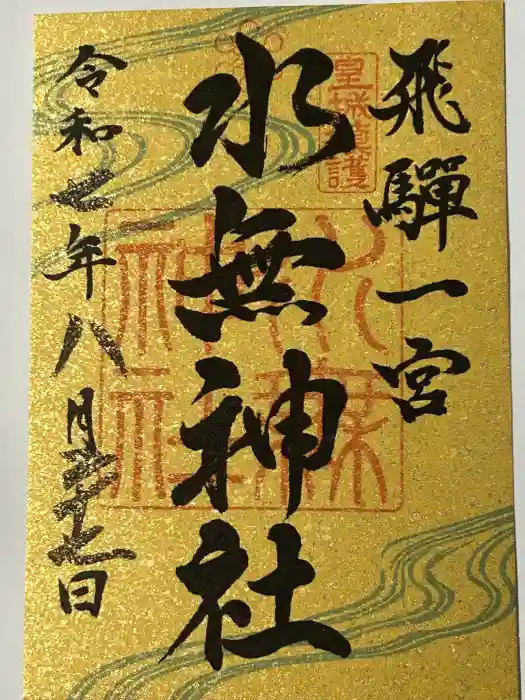 飛驒一宮
皇城鎮護
水無神社
水無神社
令和七年八月二十七日